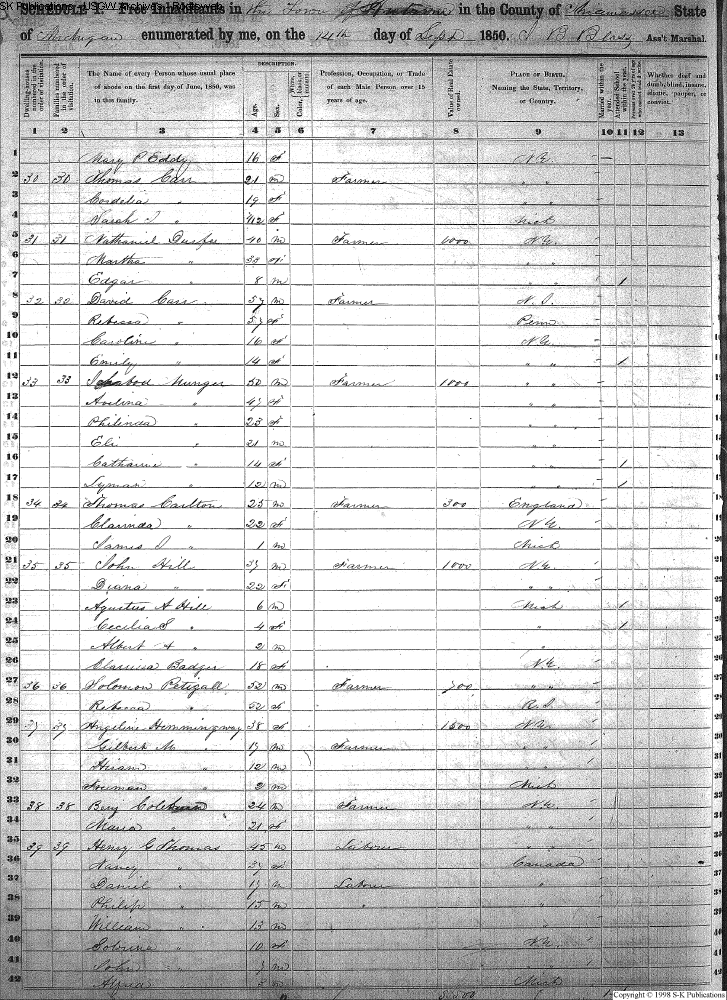 SCHEDULE I. Free Inhabitants in the Town of Antrim in the County of Shiawassee State
of Michigan enumerated by me, on the 14th day of Sept 1850. Ass't Marshal.
DESCRIPTION.
Dwelling-houses numbered in the order of visitation.
Families numbered in the order of visitation.
The Name of every Person whose usual place of abode on the first day of June, 1850, was in this family.
Age.
Sex.
Profession, Occupation, or Trade of each Male Person over 15 years of age.
Value of Real Estate owned.
PLACE OF BIRTH. Naming the State, Territory, or Country.
Married within the year.
Attended School within the year.
Whether deaf and dumb, blind, insane, idiotic, pauper, or convict.
1 2 3 4 5 6 7 8 9 10 11 12 13
1 Mary P Eddy 16 f N.Y. –
2 30 30 Thomas Carr 21 m Farmer " "
3 Cordelia " 19 f " "
4 Sarah " f Mich
5 31 31 Nathaniel 40 m Farmer 1000 N.Y.
6 Martha " f " "
7 Edgar " 8 m " " 1
8 32 David Carr 57 m Farmer
9 Rebecca " 57 f Penn
10 Caroline " 16 f N.Y.
11 Emily " 14 f " " 1
12 33 33 Ichabod Munger 50 m Farmer 1000 " "
13 " 47 f " "
14 Philinda " 23 f " "
15 Eli " 21 m " "
16 Catharine " 14 f " " 1
17 Lyman " 12 m " 1
18 34 34 Thomas Carlton 25 m Farmer 300 England
19 Clarinda " 22 f N.Y.
20 James " 1 m Mich
21 35 35 John Hill 37 m Farmer 1000 N.Y.
22 Diana " 22 f " "
23 Agustus A Hill 6 m Mich 1
24 Cecilia S " 4 f " 1
25 Albert " 2 m "
26 Clarisa Badger 18 f N.Y.
27 36 36 Solomon 52 m Farmer 700 " "
28 Rebecca " 52 f R.I.
29 37 37 Angeline Hemmingway 38 f 1500 N.Y.
30 Gilbert M " 17 m Farmer " "
31 Hiram " 12 m " "
32 " 2 m Mich
33 38 38 24 m Farmer N.Y.
34 Maria " 21 f " "
35 39 39 Henry G Thomas 45 m Laborer " "
36 Nancy " 37 f Canada
37 Daniel " 17 m Laborer "
38 Philip " 15 m " "
39 William " 13 m "
40 " 10 f N.Y.
41 John " 7 m " "
42 " Mich
Copyright © 1998 S-K Publications